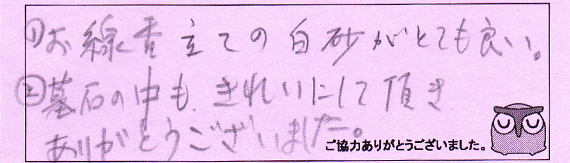 ①お線香立ての白砂がとても良い。
②墓石の中も、きれいにして頂き
ありがとうございました。
ご協力ありがとうございました。